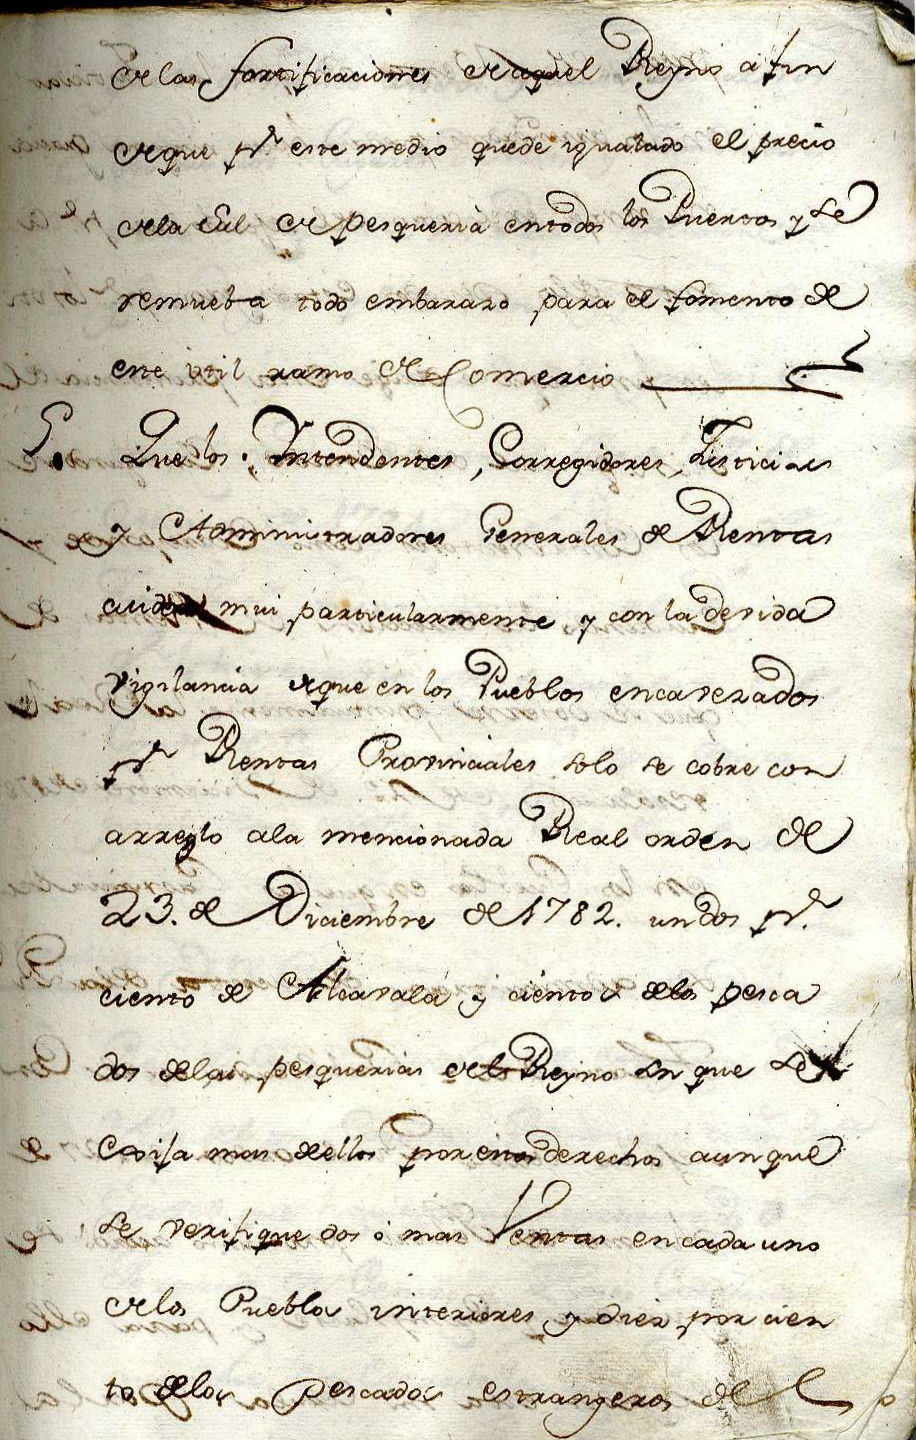 de las fortificaciones de aquel Reyno a fin
de que pr. este medio quede igualado el precio
de la Sal de pesqueria en todos los Puertos y se
remueba todo embarazo para el fomento de
este util ramo de Comercio
5. Que los Intendentes, Corregidores, Justicias
y Administradores Generales de Rentas
cuiden mui particularmente, y con la devida
vigilancia de que en los Pueblos encavezados
pr. Rentas Provinciales solo se cobre con
arreglo a la mencionada Real orden de
23. de Diciembre de 1782. un dos pr.
ciento de Alcavala y cientos de los pesca
dos de las pesquerias del Reyno sin que se
exija mas de ellos por estos derechos aunque
se verifique dos ó mas Ventas en cada uno
de los Pueblos interiores, y diez por cien
to de los Pescados estrangeros de